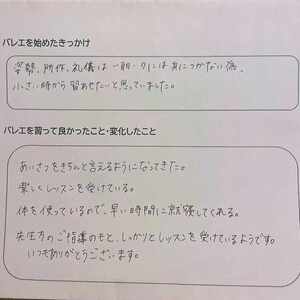 バレエを始めたきっかけ
姿勢、所作、礼儀は一朝一夕には身につかない為、
小さい時から習わせたいと思っていました。
バレエを習って良かったこと・変化したこと
あいさつをきちんと言えるようになってきた。
楽しくレッスンを受けている。
体を使っているので、早い時間に就寝してくれる。
先生方のご指導のもと、しっかりとレッスンを受けているようです。
いつもありがとうございます。